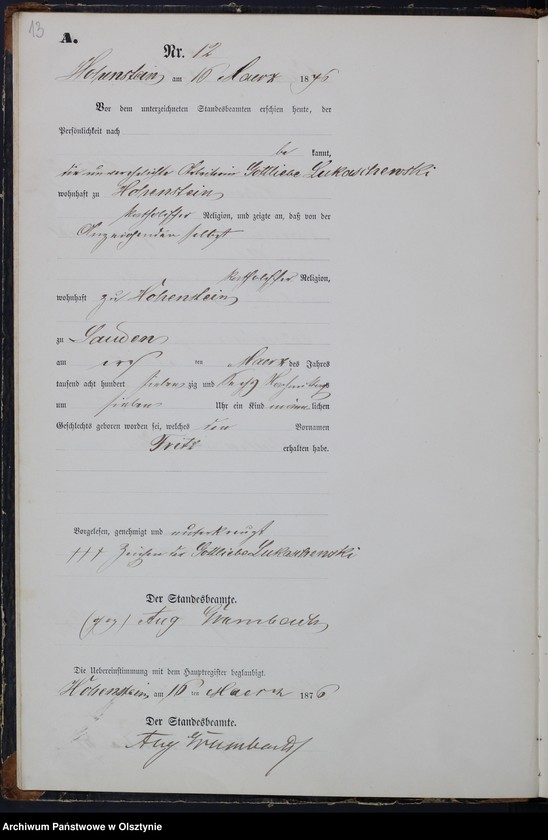 13
A.
Nr. 12
Hohenstein am 16 Maerz 1876
Vor dem unterzeichneten Standesbeamten erschien heute, der
Persönlichkeit nach
be kannt,
die unverehelichte Arbeiterin Gottliebe Lukaschewski
wohnhaft zu Hohenstein
katholischer Religion, und zeigte an, daß von der
Anzeigenden selbst
katholischer Religion,
wohnhaft zu Hohenstein
zu Sauden
am ten Maerz des Jahres
tausend acht hundert sieben zig und sechs Nachmittags
um sieben Uhr ein Kind männ lichen
Geschlechts geboren worden sei, welches den Vornamen
Fritz erhalten habe.
Vorgelesen, genehmigt und unterkreuzt
+++ Zeichen der Gottliebe Lukaschewski
Der Standesbeamte.
(gez) Aug Grumbach
Die Uebereinstimmung mit dem Hauptregister beglaubigt.
Hohenstein, am 16 ten Maerz 1876
Der Standesbeamte.
Aug Grumbach
Archiwum Państwowe w Olsztynie